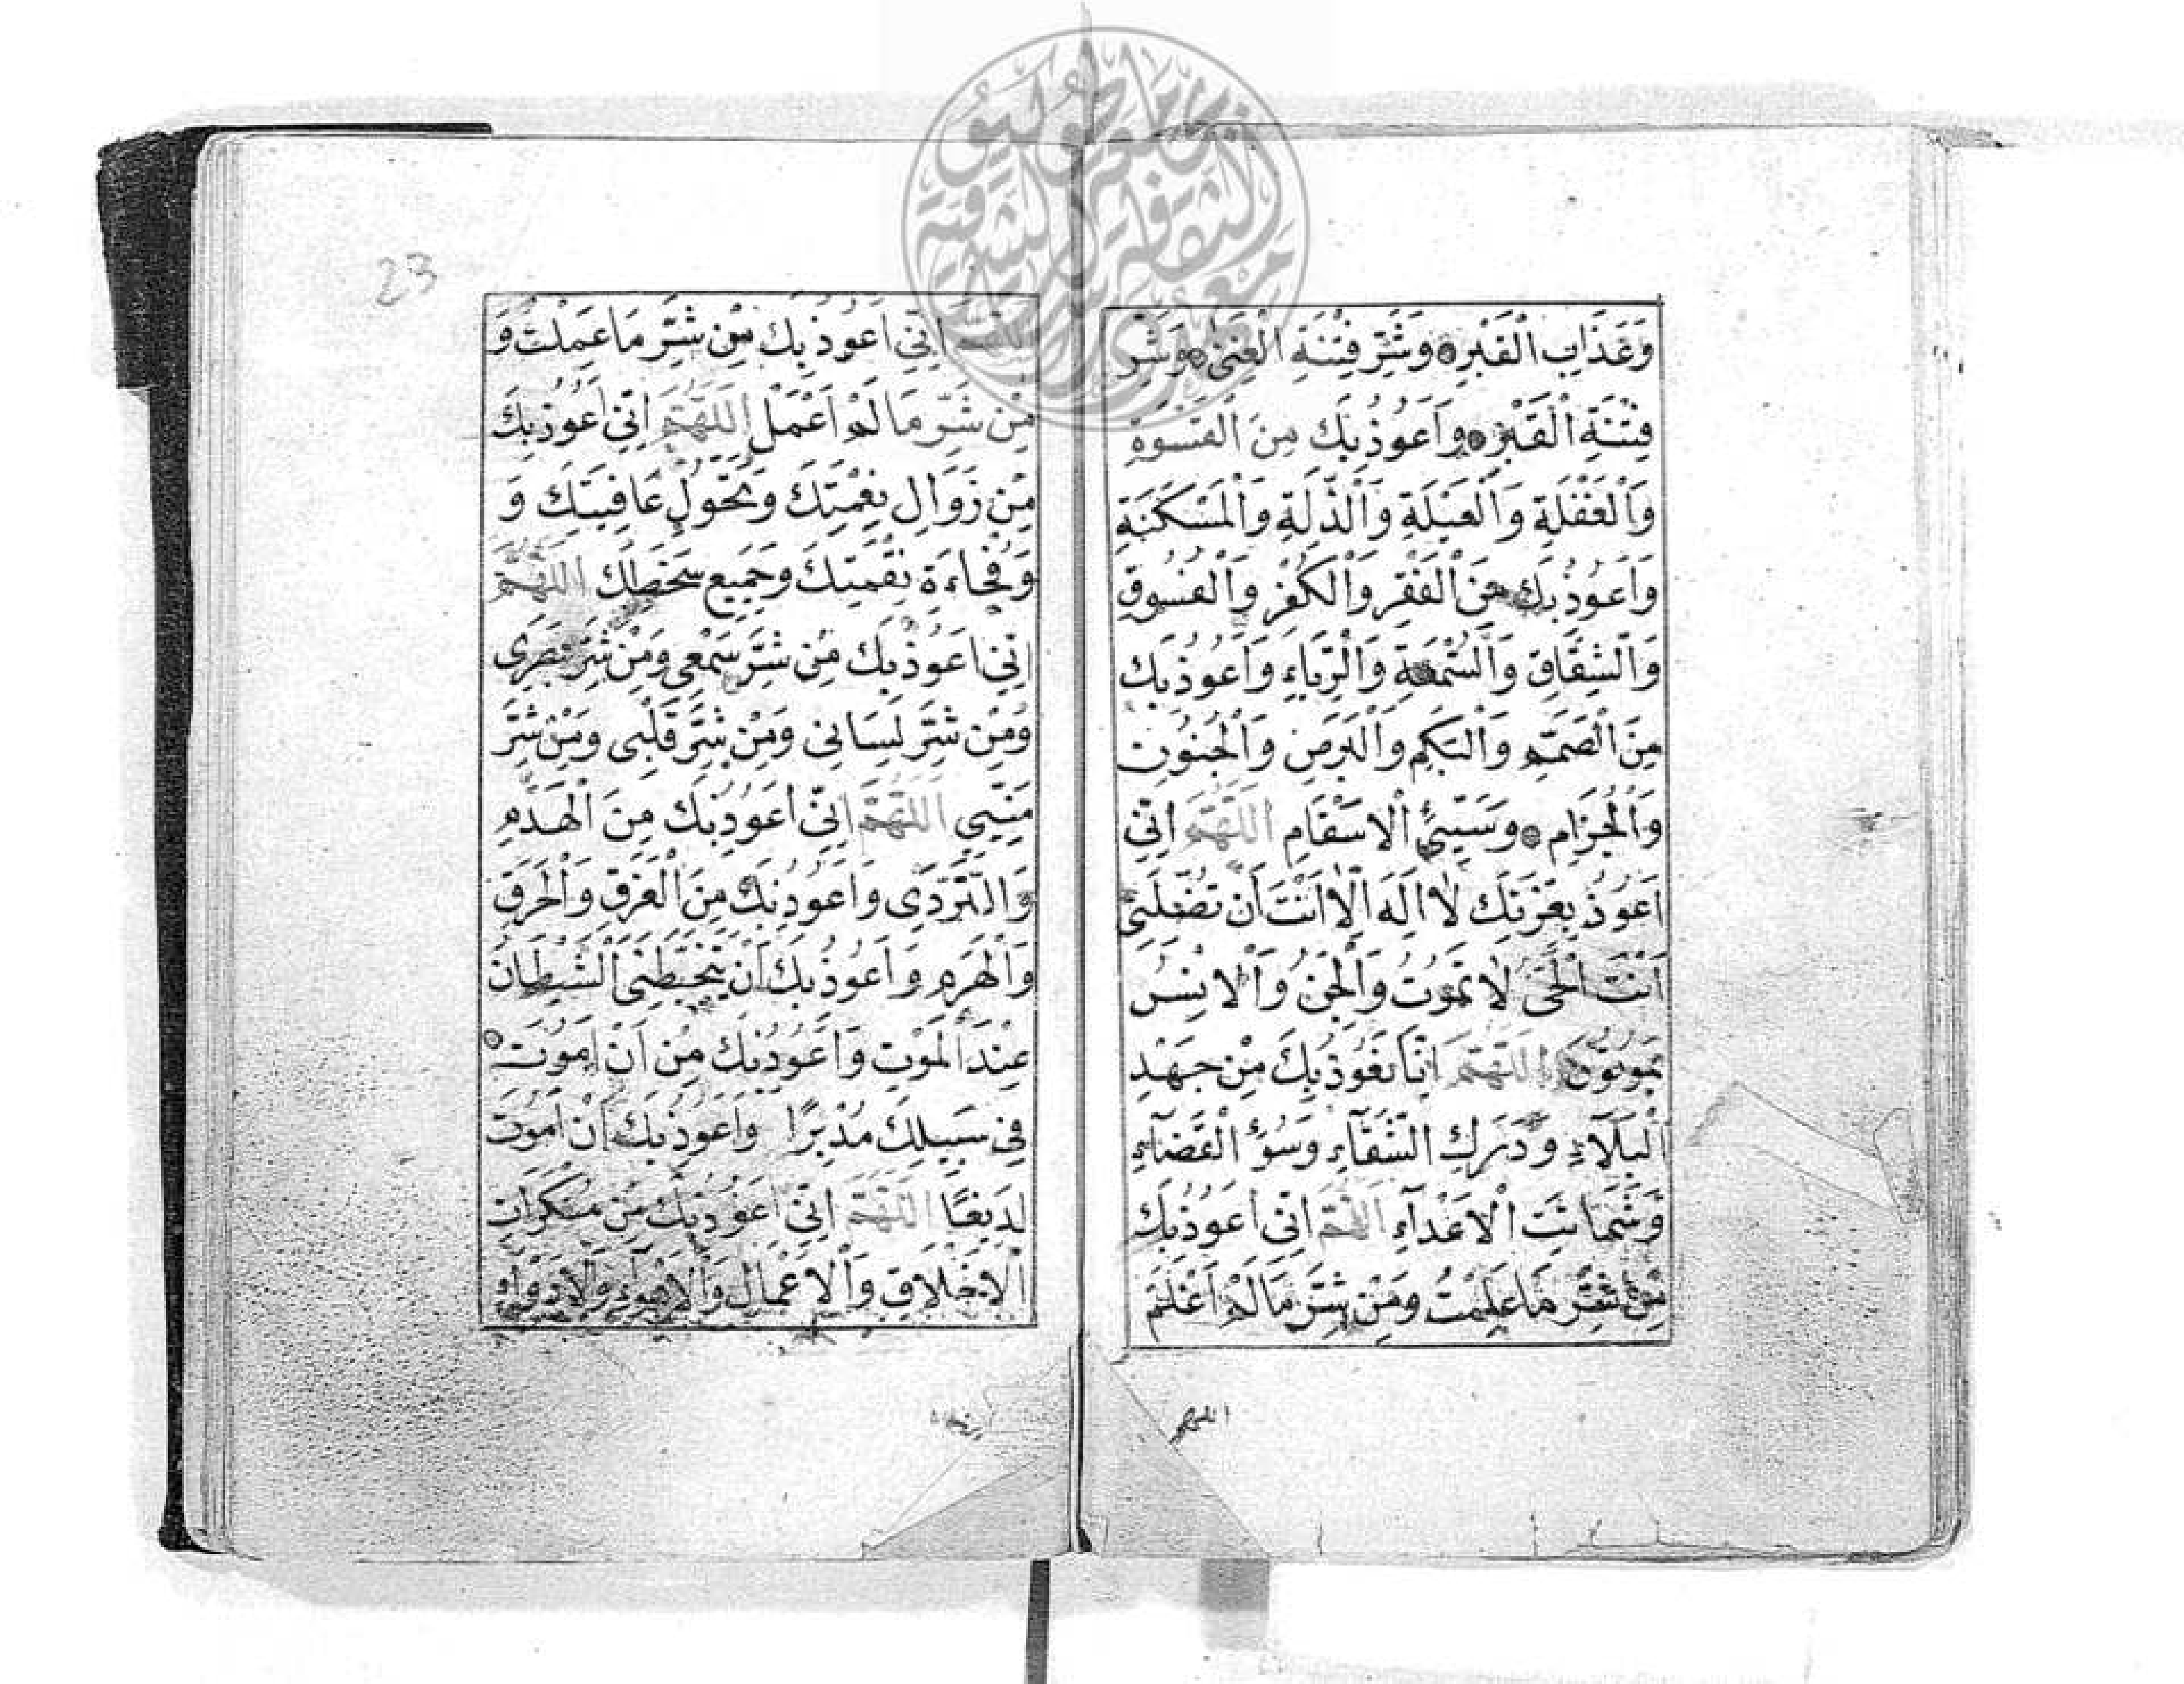 وَعَذَابِ الْقَبْرِ وَشَرِّ فِتْنَةِ الْغِنٰى وَشَرِّ
فِتْنَةِ الْقَبْرِ وَاَعُوذُ بِكَ مِنَ الْقَسْوَةِ
وَالْغَفْلَةِ وَالْعَيْلَةِ وَالذِّلَّةِ وَالْمَسْكَنَةِ
وَاَعُوذُ بِكَ مِنَ الْفَقْرِ وَالْكُفْرِ وَالْفُسُوقِ
وَالشِّقَاقِ وَالسُّمْعَةِ وَالرِّيَاءِ وَاَعُوذُ بِكَ
مِنَ الصَّمَمِ وَالْبَكَمِ وَالْبَرَصِ وَالْجُنُونِ
وَالْجُذَامِ وَسَيِّئِ الْاَسْقَامِ اَللّٰهُمَّ اِنِّى
اَعُوذُ بِعِزَّتِكَ لَا اِلٰهَ اِلَّا اَنْتَ اَنْ تُضِلَّنِى
اَنْتَ الْحَىُّ لَا تَمُوتُ وَالْجِنُّ وَالْاِنْسُ
يَمُوتُونَ اَللّٰهُمَّ اِنَّا نَعُوذُ بِكَ مِنْ جَهْدِ
الْبَلَاءِ وَدَرَكِ الشَّقَاءِ وَسُوْءِ الْقَضَاءِ
وَشَمَاتَتِ الْاَعْدَآءِ اَللّٰهُمَّ اِنِّى اَعُوذُ بِكَ
مِنْ شَرِّ مَا عَلِمْتُ وَمِنْ شَرِّ مَا لَمْ اَعْلَمْ
اللهم
23
اَللّٰهُمَّ اِنِّى اَعُوذُ بِكَ مِنْ شَرِّ مَا عَمِلْتُ وَ
مِنْ شَرِّ مَا لَمْ اَعْمَلْ اَللّٰهُمَّ اِنِّى اَعُوذُ بِكَ
مِنْ زَوَالِ نِعْمَتِكَ وَتَحَوُّلِ عَافِيَتِكَ وَ
وَفُجَاءَةِ نِقْمَتِكَ وَجَمِيعِ سَخَطِكَ اَللّٰهُمَّ
اِنِّى اَعُوذُ بِكَ مِنْ شَرِّ سَمْعِى وَمِنْ شَرِّ بَصَرِى
وَمِنْ شَرِّ لِسَانِى وَمِنْ شَرِّ قَلْبِى وَمِنْ شَرِّ
مَنِيِّى اَللّٰهُمَّ اِنِّى اَعُوذُ بِكَ مِنَ الْهَدْمِ
وَالتَّرَدِّى وَاَعُوذُ بِكَ مِنَ الْغَرَقِ وَالْحَرَقِ
وَالْهَرَمِ وَاَعُوذُ بِكَ اَنْ يَتَخَبَّطَنِى الشَّيْطَانُ
عِنْدَ الْمَوْتِ وَاَعُوذُ بِكَ مِنْ اَنْ اَمُوتَ
فِى سَبِيلِكَ مُدْبِرًا وَاَعُوذُ بِكَ اَنْ اَمُوتَ
لَدِيغًا اَللّٰهُمَّ اِنِّى اَعُوذُ بِكَ مِنْ مُنْكَرَاتِ
الْاَخْلَاقِ وَالْاَعْمَالِ وَالْاَهْوَاءِ وَالْاَدْوَاءِ